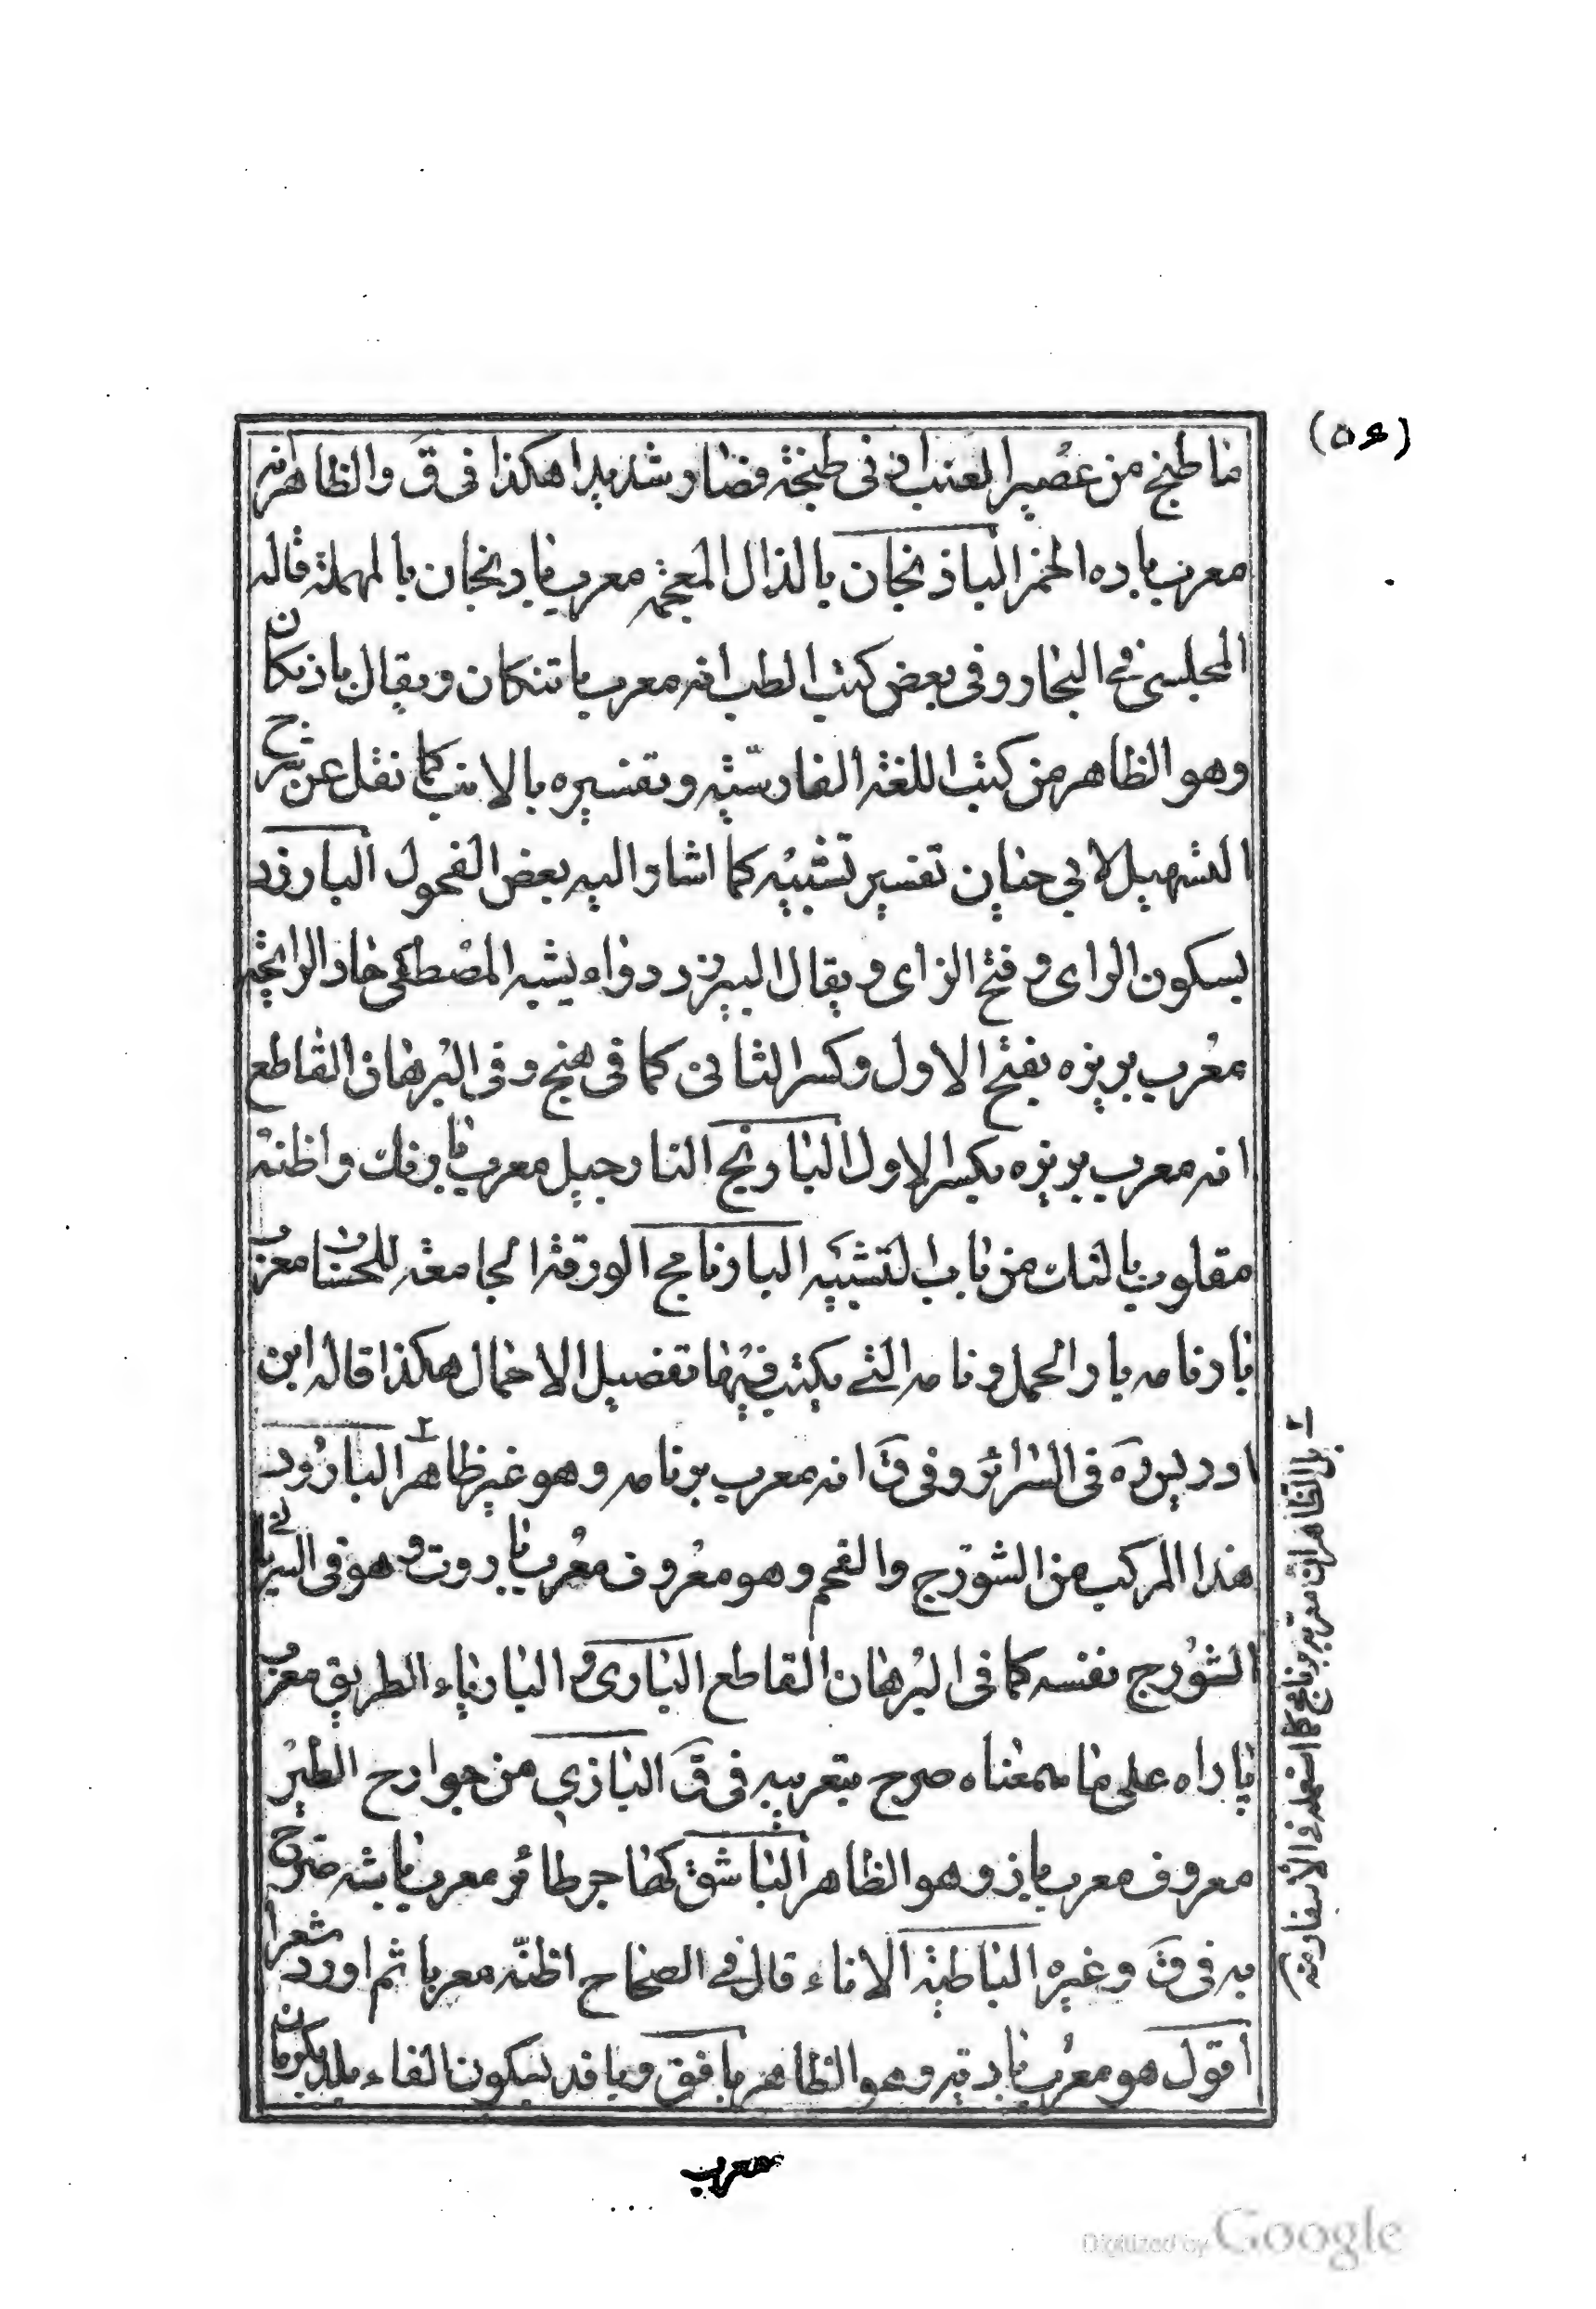 (٥٤)
ما طبخ من عصير العنب ادنى طبخة فصار شديدا هكذا في ق والظاهر انه
معرب باده الخمر الباذنجان بالذال المعجمة معرب بادنجان بالمهملة قاله
المجلسي في البحار وفي بعض كتب الطب انه معرب باتنكان ويقال باذنكان
وهو الظاهر من كتب اللغة الفارسية وتفسيره بالانب كما نقل عن شرح
التسهيل لابي حيان تفسير تشبيه كما اشار اليه بعض الفحول البارزد
بسكون الراى وفتح الزاى ويقال البيرزد دواء يشبه المصطكى حاد الرايحة
معرب بريزه بفتح الاول وكسر الثانى كما في هنج وفي البرهان القاطع
انه معرب بريزه بكسر الاول البارنج النارجيل معرب بارنك واظنه
مقلوب بالنك من باب التشبيه البارنامج الورقة الجامعة للحساب معرب
بارنامه بار الحمل ونامه التى يكتب فيها تفصيل الاحمال هكذا قاله ابن
ادريس ره في السرائر وفي ق انه معرب برنامه وهو غير ظاهر ٢ البارود
هذا المركب من الشورج والفحم وهو معروف معرب باروت وهو في السريانى
الشورج نفسه كما في البرهان القاطع البارى والبارياء الطريق معرب
پاراه على ما بمعناه صرح بتعريبه في ق البازي من جوارح الطير
معروف معرب باز وهو الظاهر الباشق كهاجر طائر معرب باشه صرح
به في ق وغيره الباطية الاناء قال في الصحاح اظنه معربا ثم اورد شعرا
اقول هو معرب بادية وهو الظاهر بافق وبافد بسكون الفاء بلد بكرمان
معرب
٢ بل الظاهر ان معربه برنامج كما استعمله في الاسفار منه)
Digitized by Google